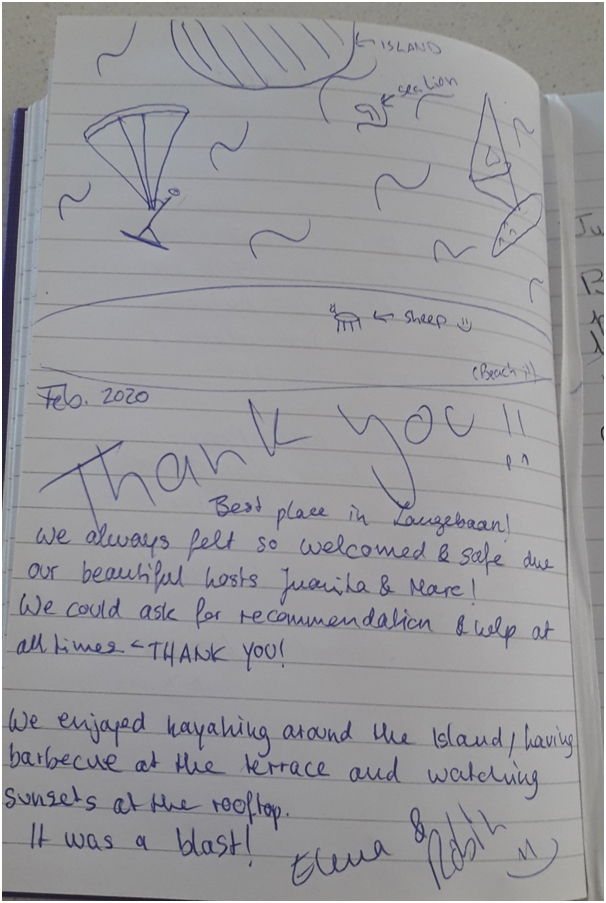 ISLAND
sea lion
sheep
(Beach)
Feb. 2020
Thank you!!
Best place in Langebaan!
We always felt so welcomed & safe due
our beautiful hosts Juanita & Marc!
We could ask for recommendation & help at
all times - THANK YOU!
We enjoyed kayaking around the Island, having
barbecue at the terrace and watching
sunsets at the rooftop.
It was a blast!
Elena & Robin
Ju